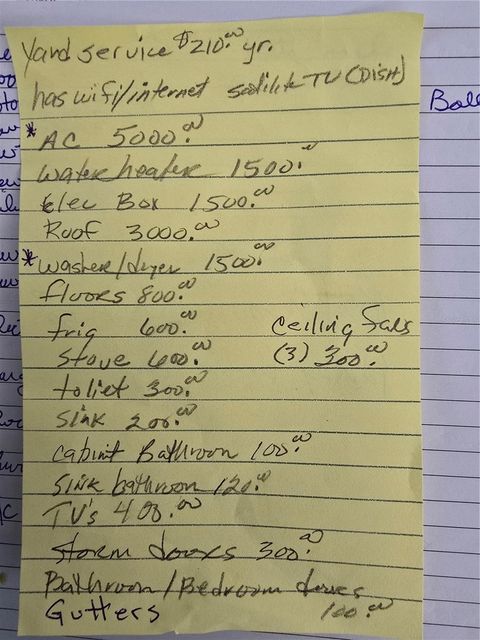 Yard service $210.00 yr.
has wifi/internet sadilite TV (DISH)
* AC 5000.00
water heater 1500.00
Elec Box 1500.00
Roof 3000.00
* washer/dryer 1500.00
floors 800.00
frig 600.00 Ceiling fans
Stove 600.00 (3) 300.00
toliet 300.00
Sink 200.00
Cabint Bathroom 100.00
Sink bathroom 120.00
TV's 400.00
Storm doors 300.00
Bathroom/Bedroom doors
Gutters 100.00